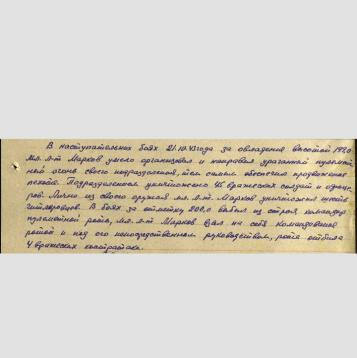 В наступательных боях 21.10.43 года за овладение высотой 192,0
мл. л-т Марков умело организовал и направил ураганный пулемет-
ный огонь своего подразделения, тем самым обеспечил продвижение
пехоты. Подразделением уничтожено 45 вражеских солдат и офице-
ров. Лично из своего оружия мл. л-т Марков уничтожил шесть
гитлеровцев. В боях за отметку 200,0 выбыл из строя командир
пулеметной роты, мл. л-т Марков взял на себя командование
ротой и под его непосредственным руководством, рота отбила
4 вражеских контратаки.